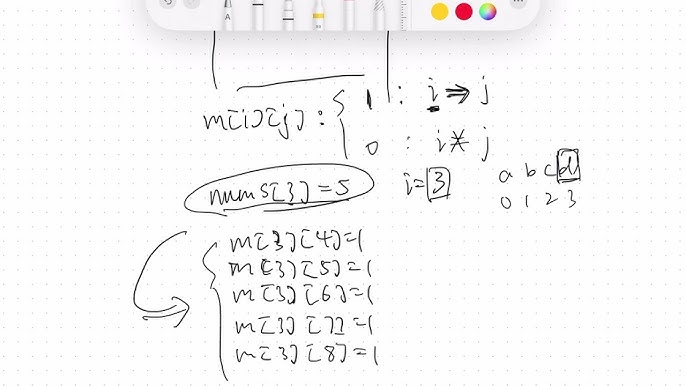 m[i][j] : { 1 : i ⇒ j
0 : i ⇏ j
nums[3] = 5
i = 3
a b c d
0 1 2 3
m[3][4]=1
m[3][5]=1
m[3][6]=1
m[3][7]=1
m[3][8]=1